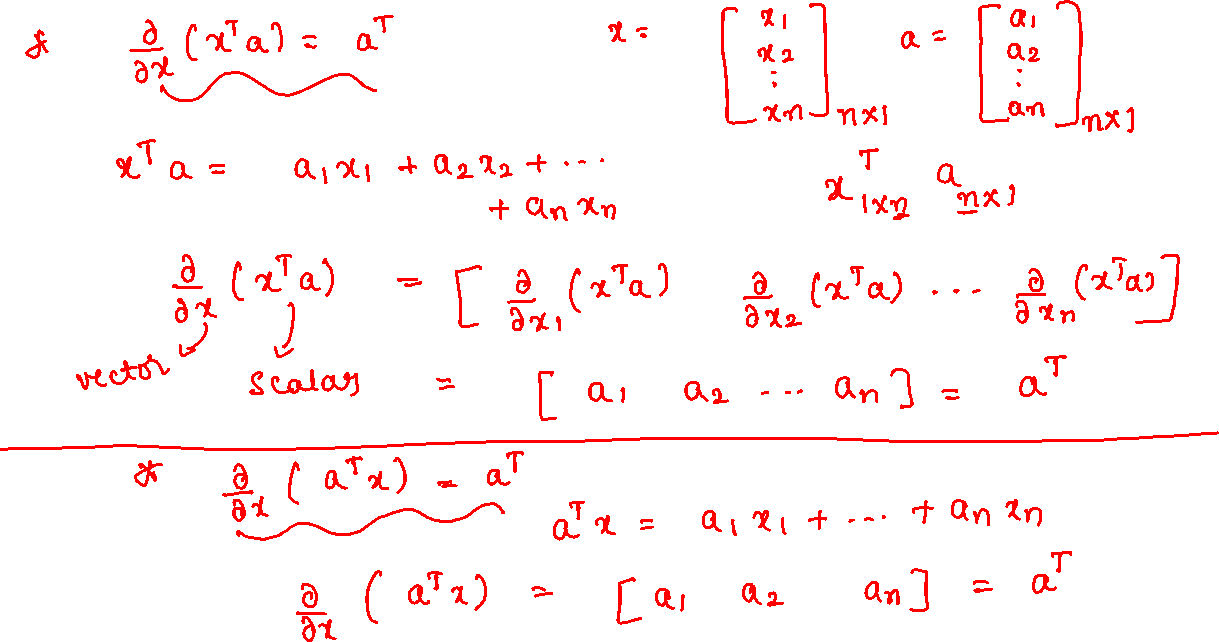 * ∂/∂x (xᵀa) = aᵀ    x = [x₁ x₂ ⋮ xₙ]ₙₓ₁    a = [a₁ a₂ ⋮ aₙ]ₙₓ₁
xᵀa = a₁x₁ + a₂x₂ + ... + aₙxₙ    xᵀ₁ₓₙ aₙₓ₁
∂/∂x (xᵀa) = [ ∂/∂x₁ (xᵀa)  ∂/∂x₂ (xᵀa) ... ∂/∂xₙ (xᵀa) ]
vector    scalar    = [ a₁  a₂ ... aₙ ] = aᵀ
* ∂/∂x (aᵀx) = aᵀ    aᵀx = a₁x₁ + ... + aₙxₙ
∂/∂x (aᵀx) = [ a₁  a₂  aₙ ] = aᵀ